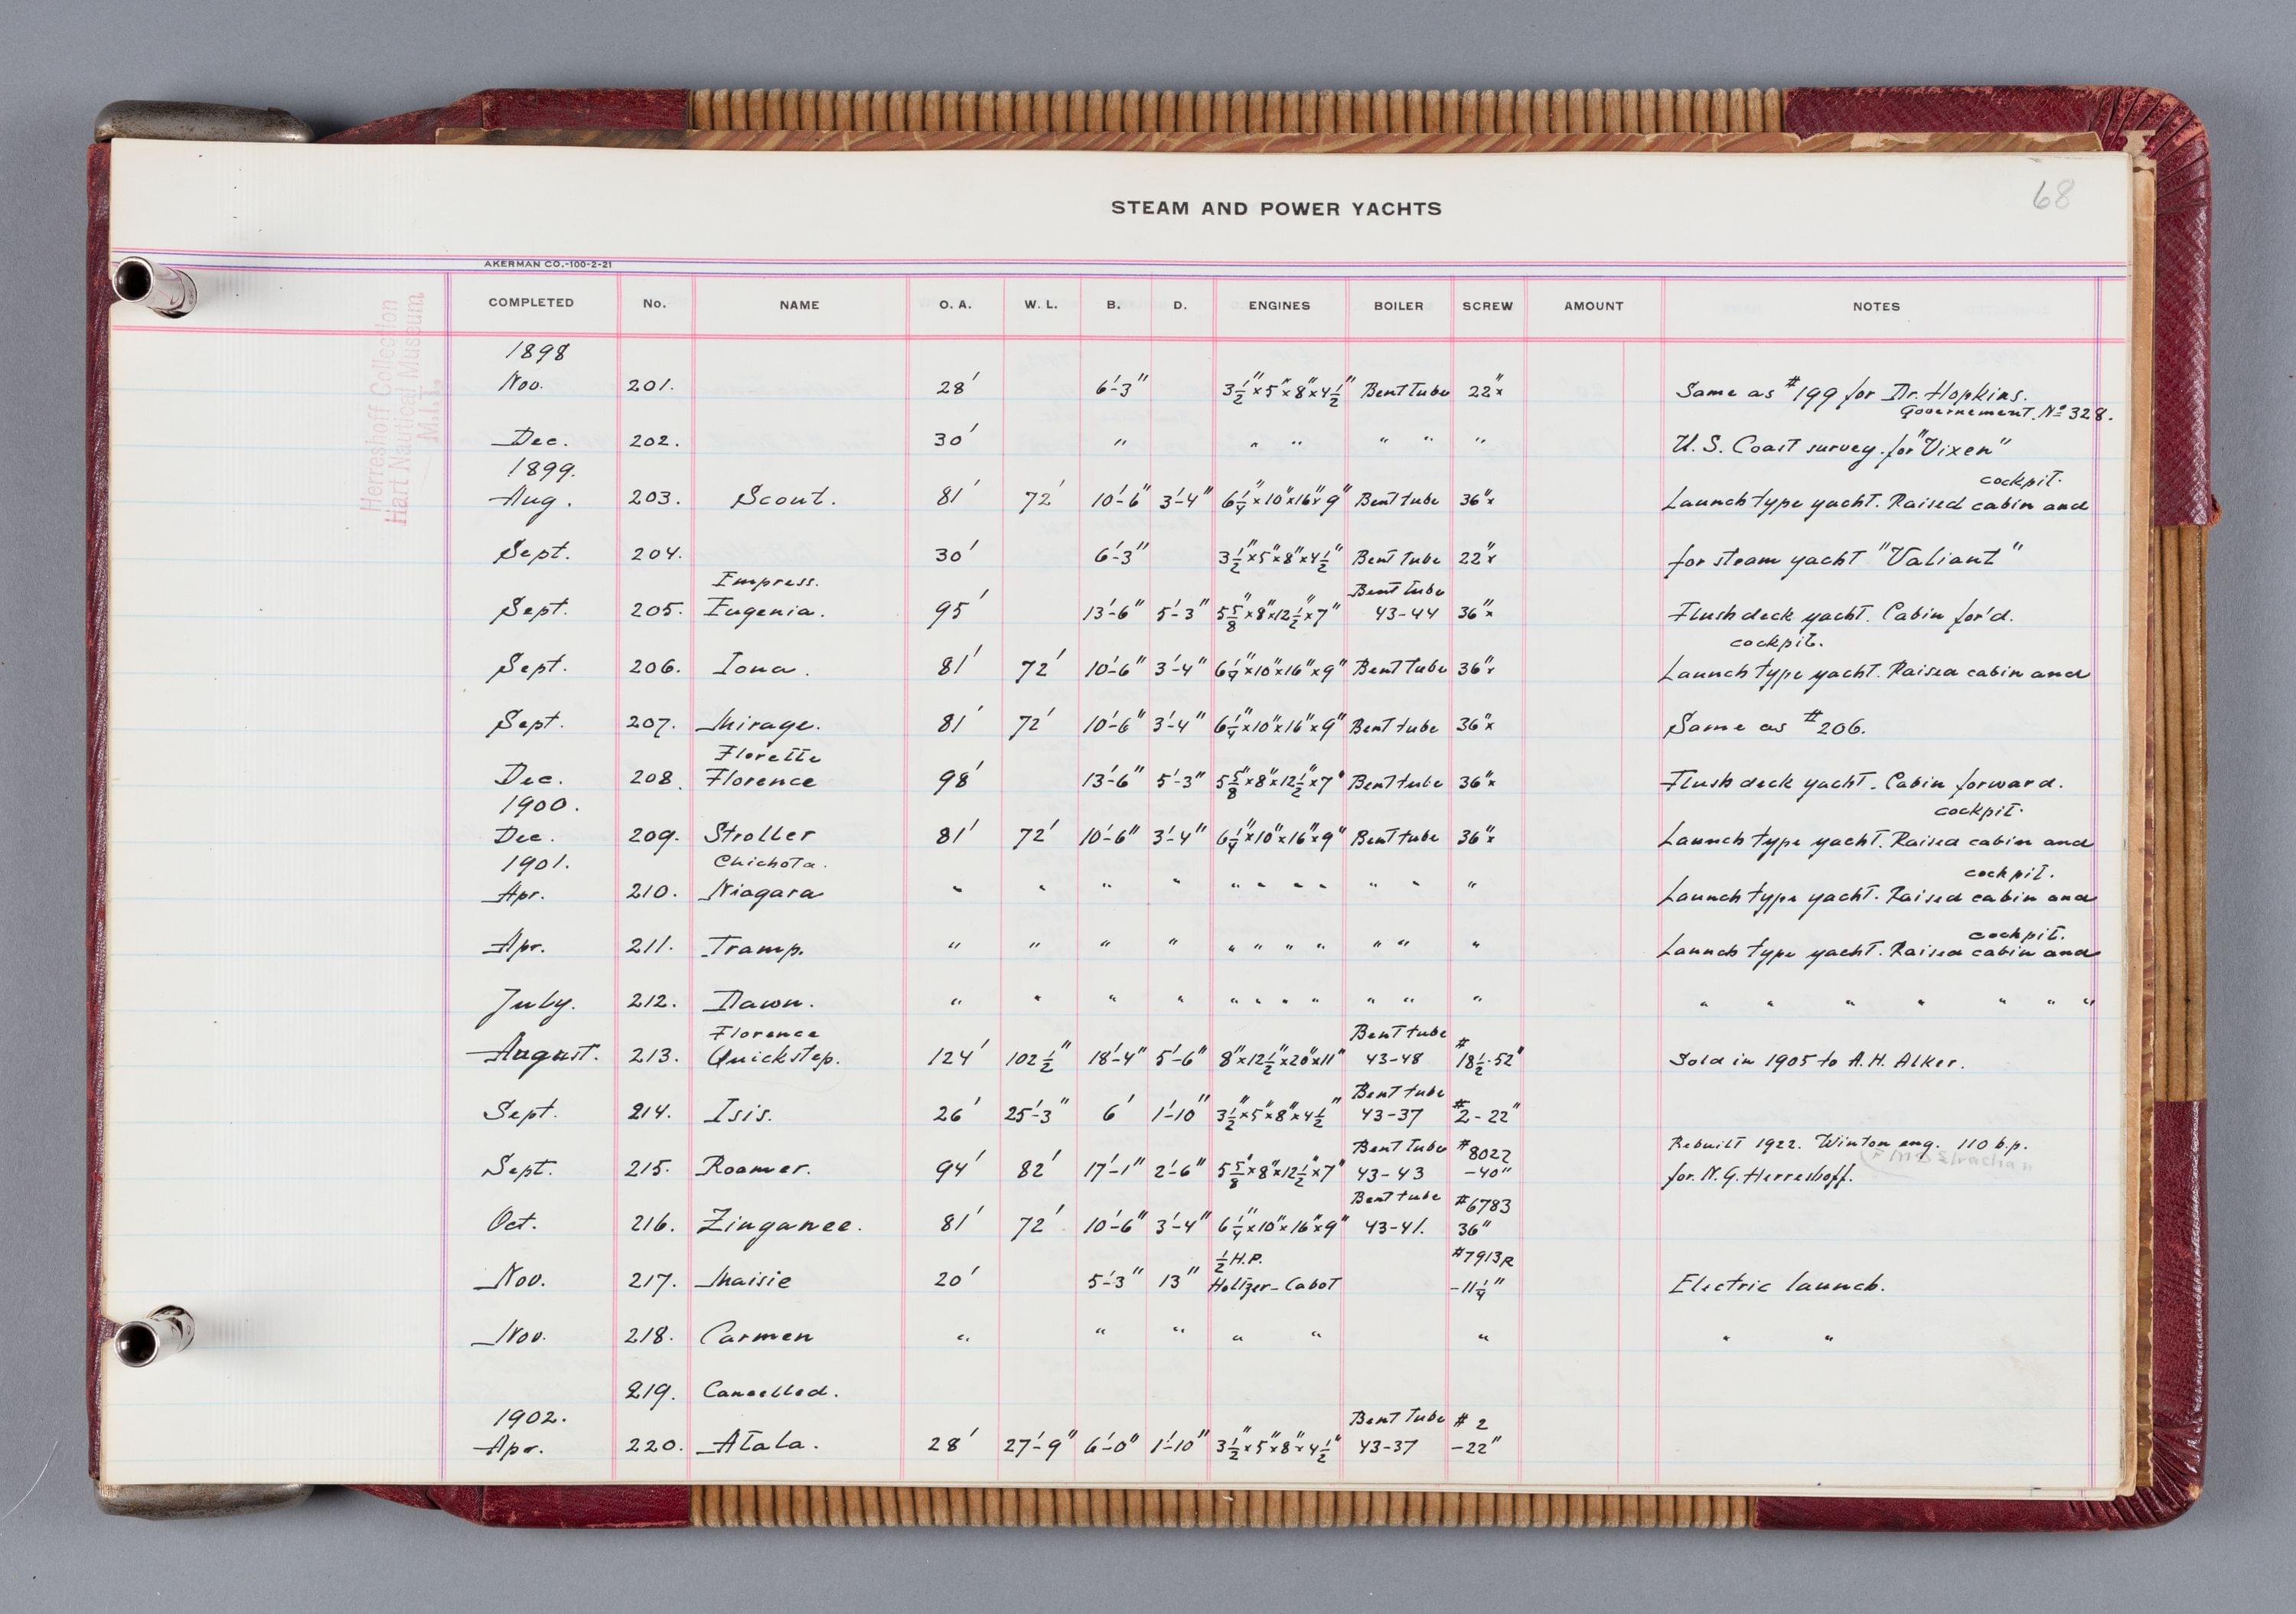 68
STEAM AND POWER YACHTS
AKERMAN CO.-100-2-21
COMPLETED No. NAME O. A. W. L. B. D. ENGINES BOILER SCREW AMOUNT NOTES
Herreshoff Collection
Hart Nautical Museum
M.I.T.
1898
Nov. 201. 28' 6'-3" 3 1/2"×5"×8"×4 1/2" Bent tube 22"× Same as #199 for Dr. Hopkins.
Governement. No 328.
Dec. 202. 30' " " " " " " U. S. Coast survey. for "Vixen"
1899. cockpit.
Aug. 203. Scout. 81' 72' 10'-6" 3'-4" 6 1/4"×10"×16"×9" Bent tube 36"× Launch type yacht. Raised cabin and
Sept. 204. 30' 6'-3" 3 1/2"×5"×8"×4 1/2" Bent tube 22"× for steam yacht "Valiant"
Empress. Bent tube
Sept. 205. Eugenia. 95' 13'-6" 5'-3" 5 5/8"×8"×12 1/2"×7" 43-44 36"× Flush deck yacht. Cabin for'd.
cockpit.
Sept. 206. Iona. 81' 72' 10'-6" 3'-4" 6 1/4"×10"×16"×9" Bent tube 36"× Launch type yacht. Raised cabin and
Sept. 207. Mirage. 81' 72' 10'-6" 3'-4" 6 1/4"×10"×16"×9" Bent tube 36"× Same as #206.
Florette
Dec. 208. Florence 98' 13'-6" 5'-3" 5 5/8"×8"×12 1/2"×7" Bent tube 36"× Flush deck yacht. Cabin forward.
1900. cockpit.
Dec. 209. Stroller 81' 72' 10'-6" 3'-4" 6 1/4"×10"×16"×9" Bent tube 36"× Launch type yacht. Raised cabin and
1901. Chichota. cockpit.
Apr. 210. Niagara " " " " " " " " " " " Launch type yacht. Raised cabin and
cockpit.
Apr. 211. Tramp. " " " " " " " " " " " Launch type yacht. Raised cabin and
July. 212. Dawn. " " " " " " " " " " " " " " " " " "
Florence Bent tube
August. 213. Quickstep. 124' 102 1/2" 18'-4" 5'-6" 8"×12 1/2"×20"×11" 43-48 #18 1/2-52" Sold in 1905 to A. H. Alker.
Bent tube
Sept. 214. Isis. 26' 25'-3" 6' 1'-10" 3 1/2"×5"×8"×4 1/2" 43-37 #2-22"
Bent tube #8022 Rebuilt 1922. Winton eng. 110 b.p.
Sept. 215. Roamer. 94' 82' 17'-1" 2'-6" 5 5/8"×8"×12 1/2"×7" 43-43 -40" for N. G. Herreshoff.
Bent tube #6783
Oct. 216. Zinganee. 81' 72' 10'-6" 3'-4" 6 1/4"×10"×16"×9" 43-41. 36"
1/2 H.P. #7913R
Nov. 217. Maisie 20' 5'-3" 13" Holtzer-Cabot -11 1/4" Electric launch.
Nov. 218. Carmen " " " " " " " "
219. Cancelled.
1902. Bent tube # 2
Apr. 220. Atala. 28' 27'-9" 6'-0" 1'-10" 3 1/2"×5"×8"×4 1/2" 43-37 -22"